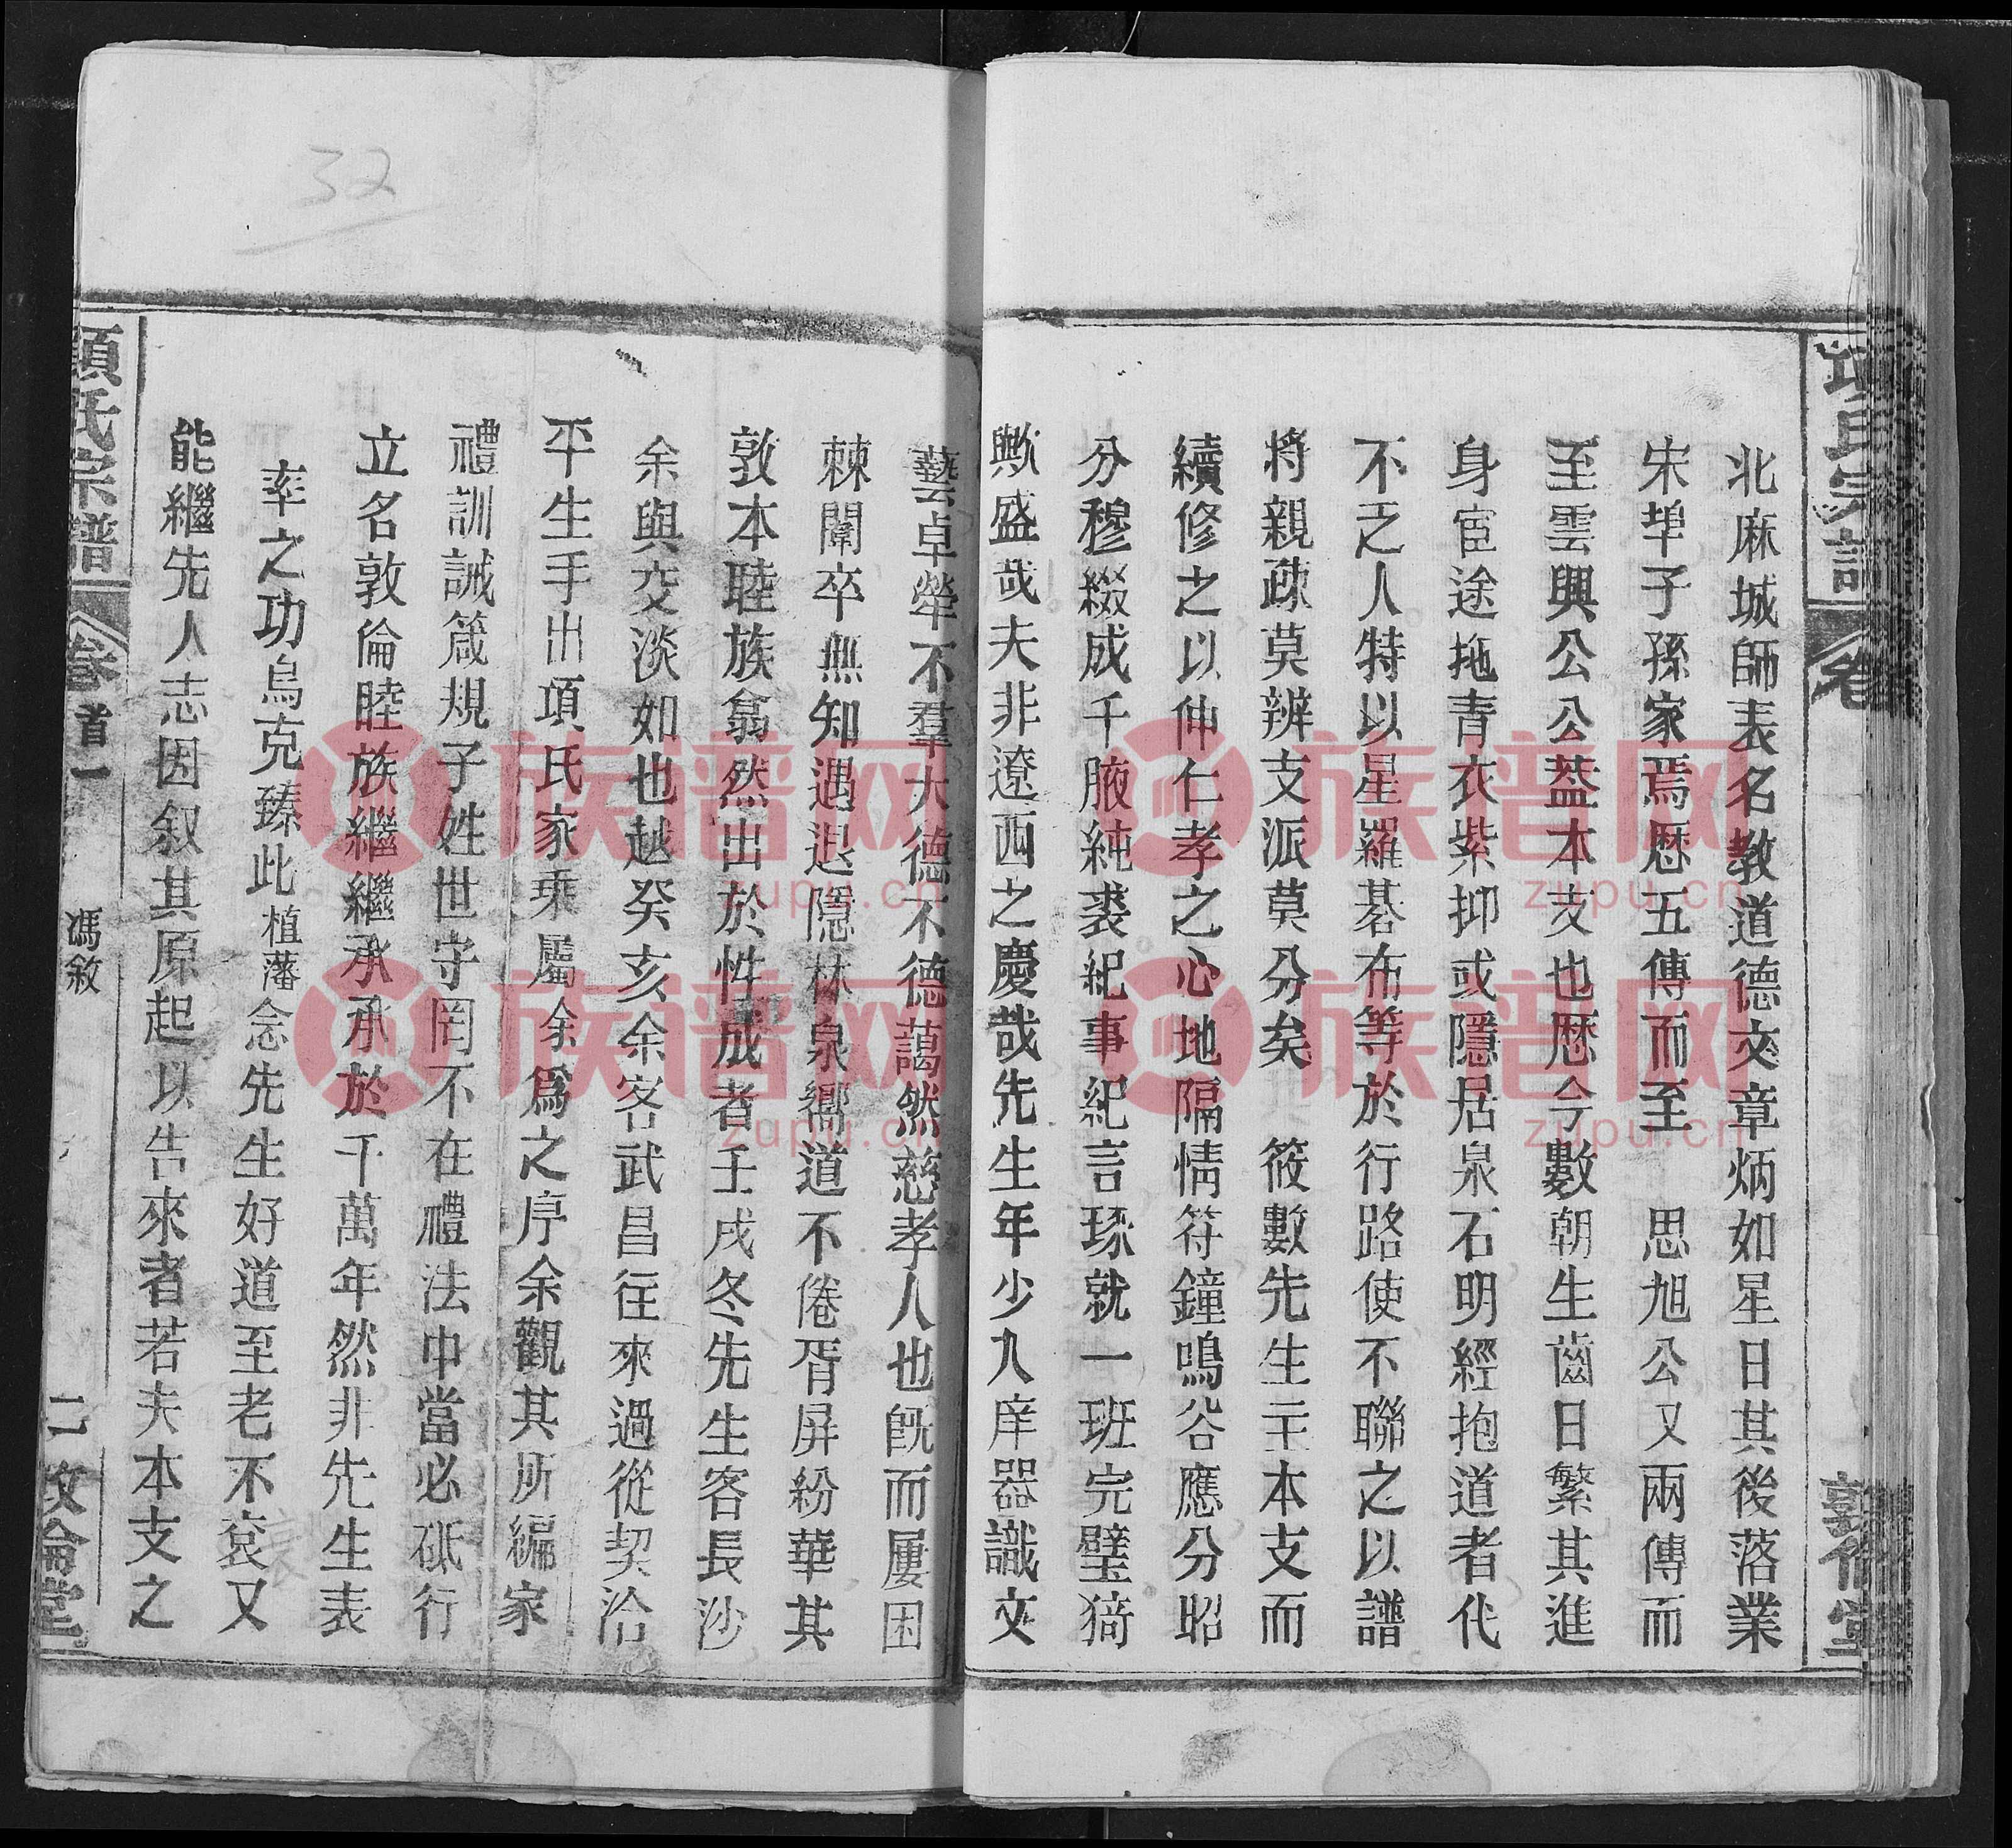 項氏宗譜
卷
敦倫堂
北麻城師表名教道德文章炳如星日其後落業
宋埠子孫家焉歷五傳而至 思旭公又兩傳而
至雲興公公葢本支也歷今數朝生齒日繁其進
身宦途拖青衣紫抑或隱居泉石明經抱道者代
不乏人特以星羅碁布等於行路使不聯之以譜
將親疎莫辨支派莫分矣 筱數先生主本支而
續修之以仲仁孝之心地隔情符鐘鳴谷應分昭
分穆綴成千腋純裘紀事紀言琢就一班完璧猗
歟盛哉夫非遼西之慶哉先生年少入庠器識文
藝卓犖不羣大德不德藹然慈孝人也旣而屢困
棘闈卒無知遇退隱林泉嚮道不倦胥屏紛華其
敦本睦族翕然出於性成者壬戌冬先生客長沙
余與交淡如也越癸亥余客武昌往來過從契洽
平生手出項氏家乘屬余爲之序余觀其所編家
禮訓誡箴規子姓世守罔不在禮法中當必砥行
立名敦倫睦族繼繼承承於千萬年然非先生表
率之功烏克臻此植藩念先生好道至老不衰又
能繼先人志因叙其原起以告來者若夫本支之
項氏宗譜
卷首一
馮敘
二
敦倫堂
32
族谱网
zupu.cn
族谱网
zupu.cn
族谱网
zupu.cn
族谱网
zupu.cn